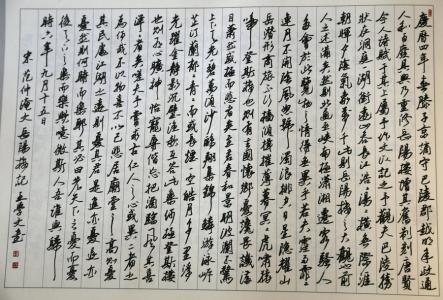 慶曆四年春滕子京謫守巴陵郡越明年政通
人和百廢具興乃重修岳陽樓增其舊制刻唐賢
今人詩賦於其上屬予作文以記之予觀夫巴陵勝
狀在洞庭一湖銜遠山吞長江浩浩湯湯橫無際涯
朝暉夕陰氣象萬千此則岳陽樓之大觀也前
人之述備矣然則北通巫峽南極瀟湘遷客騷人
多會於此覽物之情得無異乎若夫霪雨霏霏
連月不開陰風怒號濁浪排空日星隱耀山
岳潛形商旅不行檣傾楫摧薄暮冥冥虎嘯猿
啼登斯樓也則有去國懷鄉憂讒畏譏滿
目蕭然感極而悲者矣至若春和景明波瀾不驚
上下天光一碧萬頃沙鷗翔集錦鱗游泳岸
芷汀蘭郁郁青青而或長煙一空皓月千里浮
光躍金靜影沉璧漁歌互答此樂何極登斯樓
也則有心曠神怡寵辱偕忘把酒臨風其喜
洋洋者矣嗟夫予嘗求古仁人之心或異二者之
為何哉不以物喜不以己悲居廟堂之高則憂
其民處江湖之遠則憂其君是進亦憂退亦
憂然則何時而樂耶其必曰先天下之憂而憂
後天下之樂而樂歟噫微斯人吾誰與歸
時六年九月十五日
宋 范仲淹文 岳陽樓記